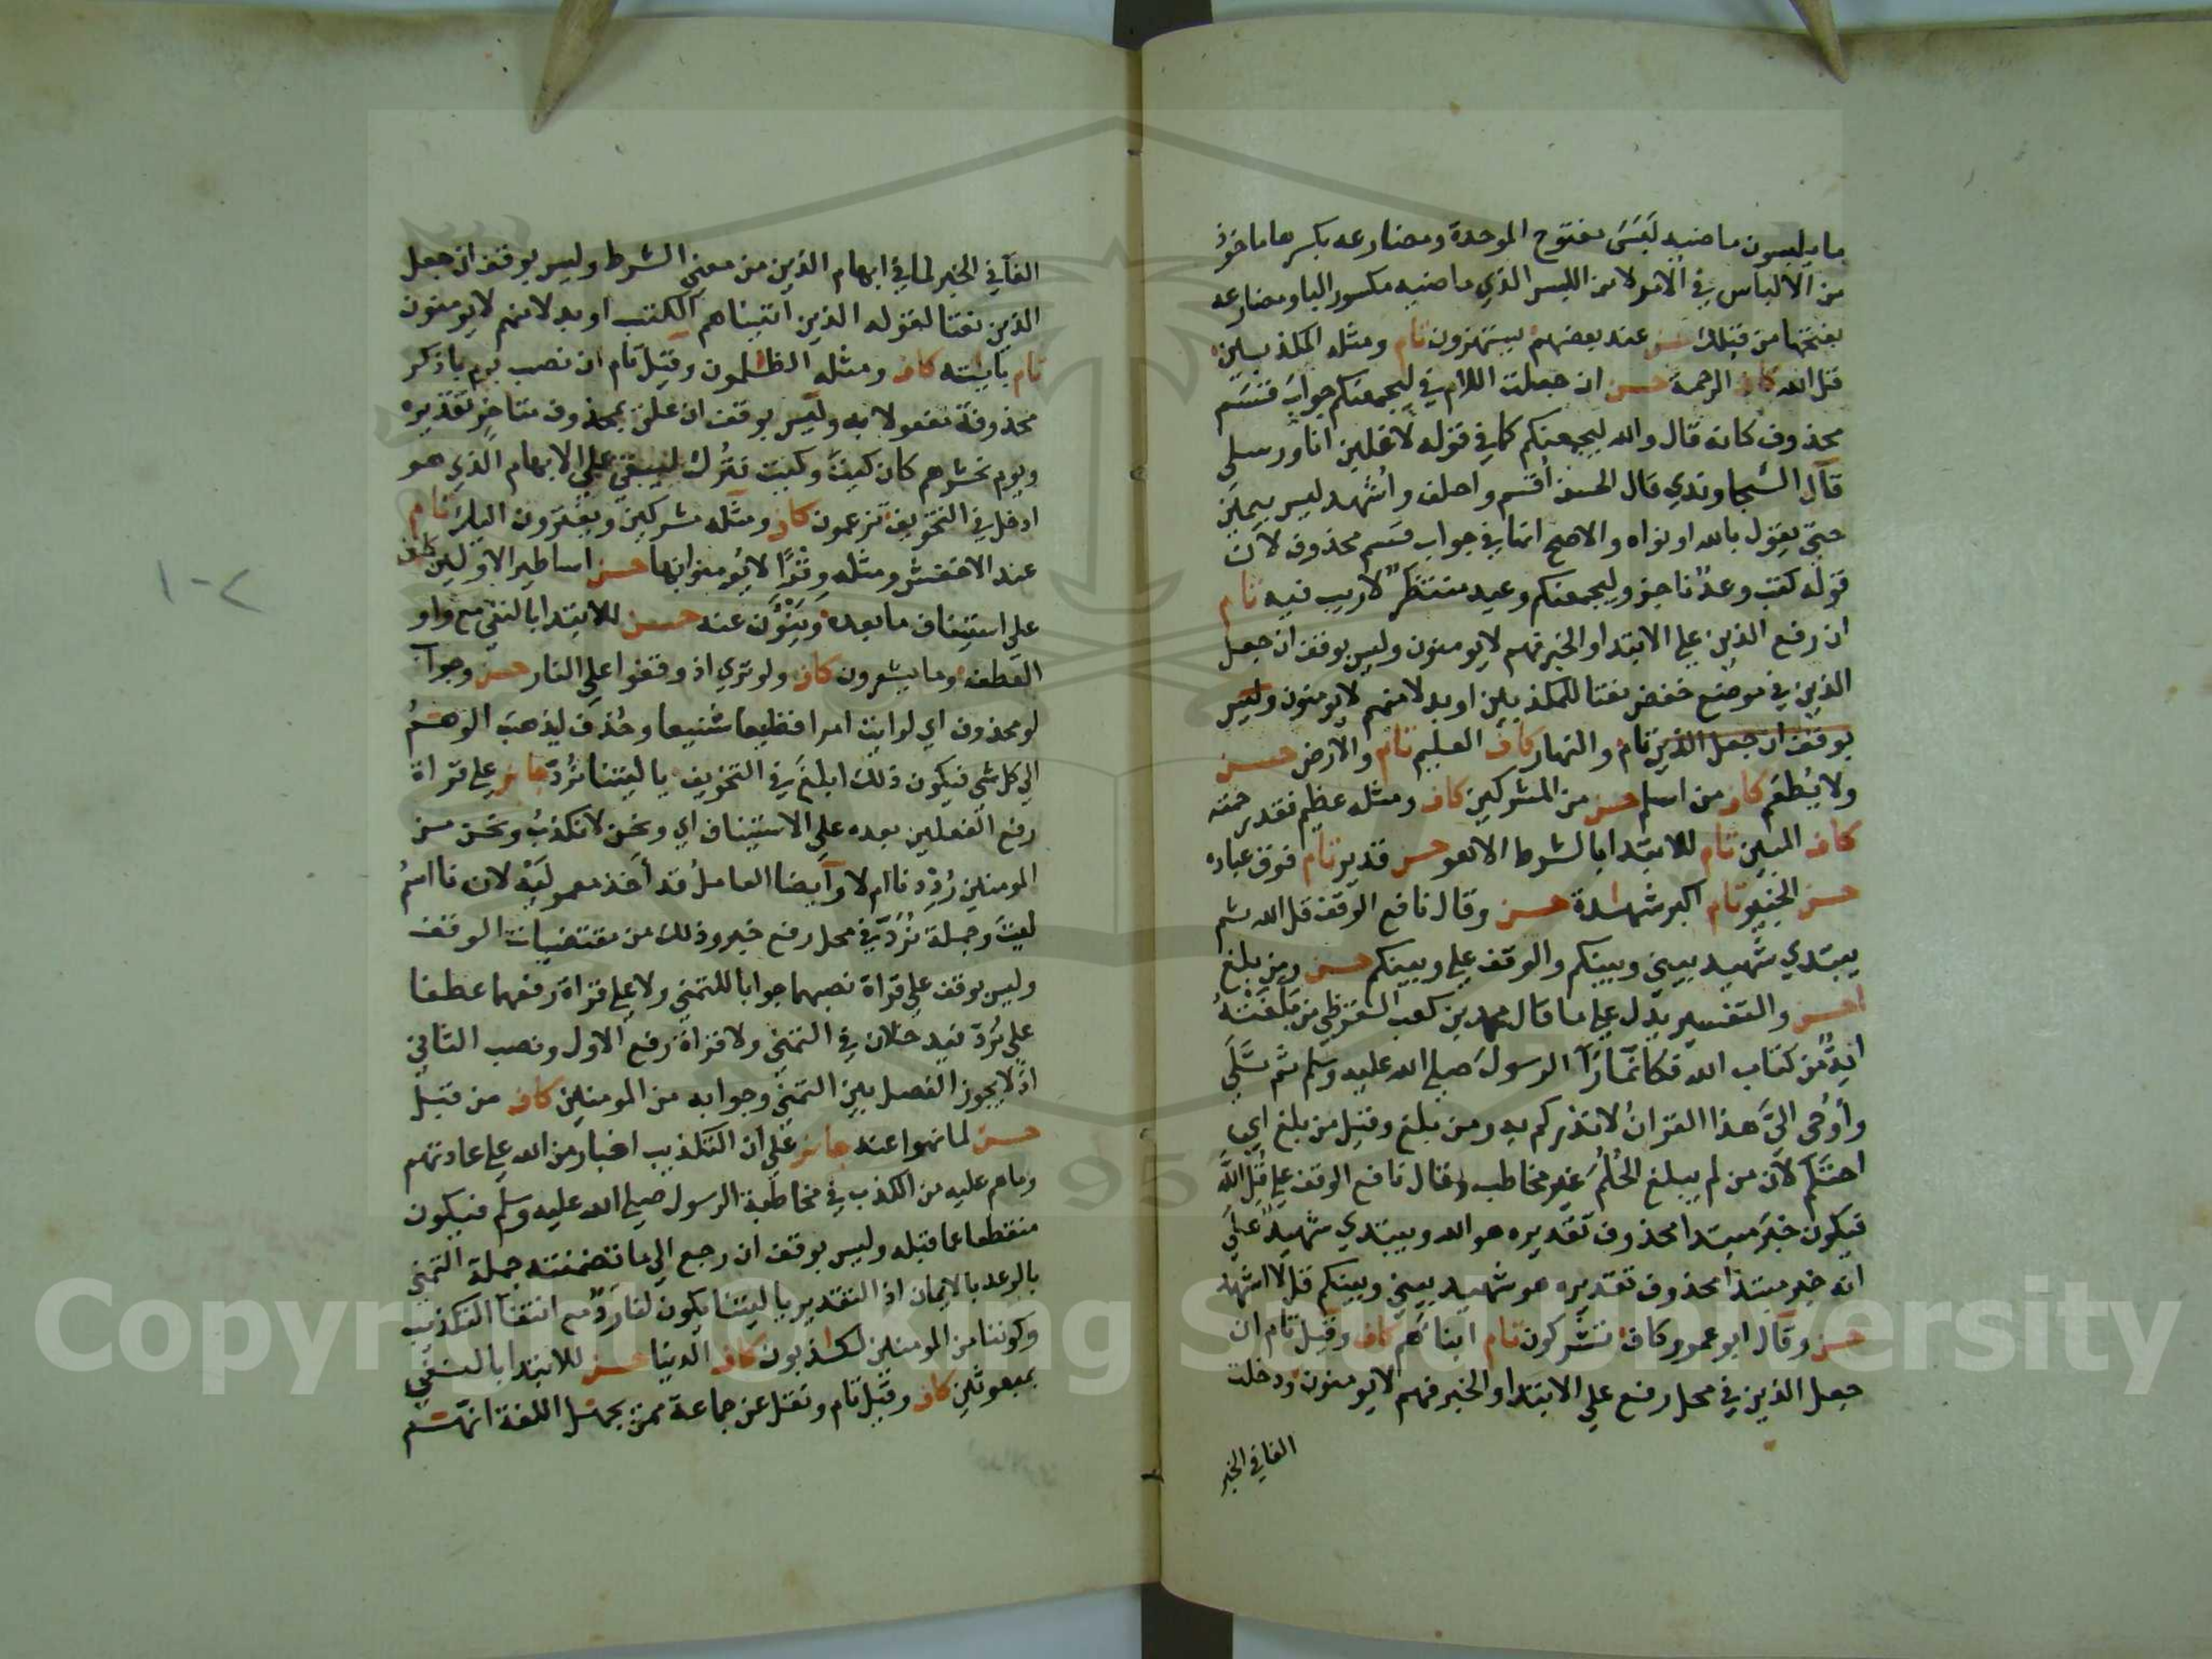 ما يلبسون ماضيه لَبَسَ مفتوح الموحدة ومضارعه بكسرها ماخوذ
من الالباس في الامر لا من اللبس الذي ماضيه مكسور الباء ومضارعه
بفتحها من قبلك حسن عند بعضهم يستهزون تام ومثله المكذبين
قل لله كاف الرحمة حسن ان جعلت اللام في ليجمعنكم جوابَ قسَم
محذوف كانه قال والله ليجمعنكم كما في قوله لاغلبن انا ورسلي
قال السجاوندي قال الحسن اُقسم واحلف واُشهد ليس بيمين
حتى يقول بالله او نواه والاصح انها في جواب قسم محذوف لان
قوله كتب وعدٌ ناجز وليجمعنكم وعيد منتظرٌ لاريب فيه تام
ان رفع الذين على الابتداء والخبر فهم لايومنون وليس بوقف ان جعل
الذين في موضع خفض نعتا للمكذبين او بدلا منهم لايومنون وليس
بوقف ان جعل الذين تام والنهار كاف العليم تام والارض حسن
ولا يُطعَم كاف من اسلم حسن من المشركين كاف ومثله عظيم فقد رحمته
كاف المبين تام للابتداء بالشرط الا هو حسن قدير تام فوق عباده
حسن الخبير تام اكبر شهادة حسن وقال نافع الوقف قل الله ثم
يبتدي شهيد بيني وبينكم والوقف على وبينكم حسن ومن بلغ
احسن والتفسير يدل على ما قال محمد بن كعب القرظي من بلغَتْهُ
ايةٌ من كتاب الله فكانما رأا الرسولَ صلى الله عليه وسلم ثم تلى
وأُوحى الىَّ هذا القران لانذركم به ومن بلغ وقيل من بلغ اي
احتلم لان من لم يبلغ الحُلُمَ غير مخاطب وقال نافع الوقف على قل الله
فيكون خبَرَ مبتدا محذوف تقديره هو الله ويبتدي شهيدٌ على
انه خبر مبتدا محذوف تقديره هو شهيد بيني وبينكم قل لا اشهد
حسن وقال ابو عمرو كاف تشركون تام ابناءهم كاف وقيل تام ان
جعل الذين في محل رفع على الابتداء والخبر فهم لايومنون ودخلت
الفا في الخبر
الفآ في الخبر لما في ابهام الذين من معنى الشرط وليس بوقف ان جعل
الذين نعتا لقوله الذين اتيناهم الكتب او بدلا منهم لايومنون
تام باياته كاف ومثله الظلمون وقيل تام ان نصب يوم باذكر
محذوفة مفعولا به وليس بوقف ان علق بمحذوف متاخر تقديره
ويوم نحشرهم كان كيتَ وكيت فتُرك ليبقى على الابهام الذي هو
ادخل في التخويف تزعمون كاف ومثله مشركين ويفترون اليك تام
عند الاخفش ومثله وقرًا لايُومنوا بها حسن اساطير الاولين كاف
على استيناف ما بعده وينْئَوْن عنه حسن للابتداء بالنفي مع واو
العطف وما يشعرون كاف ولو ترى اذ وقفوا على النار حسن وجوابُ
لو محذوف اي لرايت امرا فظيعا شنيعا وحُذف ليذهب الوهمُ
الى كل شي فيكون ذلك ابلغَ في التخويف يا ليتنا نُردّ جائز على قراة
رفع الفعلين بعده على الاستيناف اي ونحن لانكذبُ ونحن من
المومنين رُدِدنا ام لا وايضا العاملُ قد أخذ معموليْه لان نا اسمُ
ليتَ وجملة نُرَدّ في محل رفع خبر وذلك من مقتضيات الوقف
وليس بوقف على قراة نصبهما جوابا للتمني ولا على قراة رفعهما عطفا
على نُرَدّ فيدخلان في التمني ولا قراة رفع الاول ونصب الثاني
اذ لا يجوز الفصل بين التمني وجوابه من المومنين كاف من قبل
حسن لما نهوا عنه جائز على أن التكذيب اخبار من الله على عادتهم
وما هم عليه من الكذب في مخاطبة الرسول صلى الله عليه وسلم فيكون
منقطعا عما قبله وليس بوقف ان رجع الى ما تضمنته جملة التمني
بالوعد بالايمان اذ التقدير يا ليتنا يكون لنا ردّ مع انتفا التكذيب
وكوننا من المومنين لكاذبون كاف الدنيا حسن للابتداء بالنفي
بمبعوثين كاف وقيل تام ونقل عن جماعة ممن يجهل اللغة انهم
١٠٢
Copyright © King Saud University
95